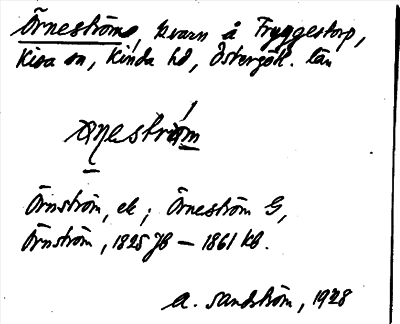 Örneström, kvarn å Fryggestorp,
Kisa sn, Kinda hd, Östergötl. län
Örnström, ek; Örneström G,
Örnström, 1825 JB — 1861 kb.
A. Sandström, 1928